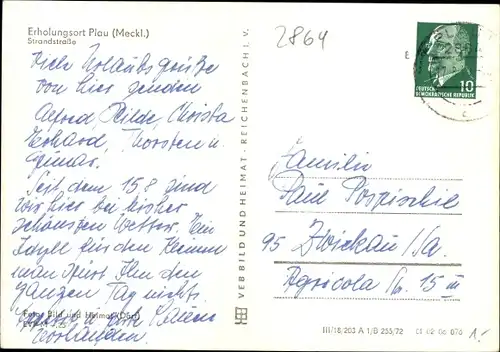 Erholungsort Plau (Meckl.)
Strandstraße
2864
Viele Urlaubsgrüße
von hier senden
Alfred, Hilde, Christa
Gerhard, Thorsten u.
Gunar.
Seit dem 15.8 sind
wir hier bei bisher
schönsten Wetter. Ein
Idyll für den Keimm
man spürt Ihn den
ganzen Tag nichts.
vorhanden.
Foto: Bild und Heimat
VEB BILD UND HEIMAT · REICHENBACH I. V.
DEUTSCHE
DEMOKRATISCHE REPUBLIK
10
Familie
Paul Pospischil
95 Zwickau/Sa.
Agricola Str. 15 III
III/18/203 A 1/B 255/72 01 02 06 076
1.-